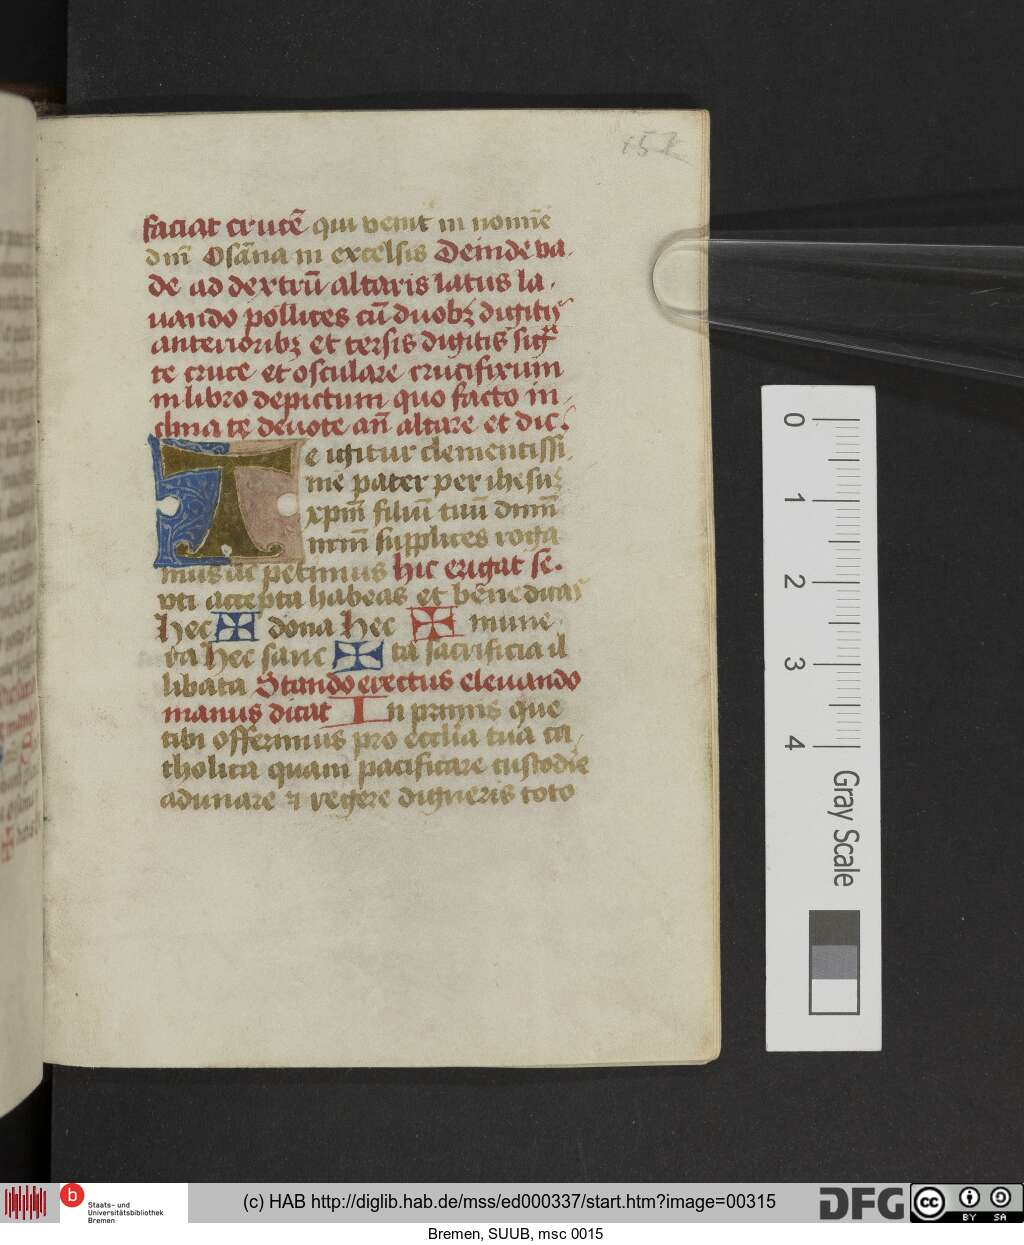 157
faciat crucē qui venit in nomīe
dnī Osāna in excelsis Deinde va
de ad dextrū altaris latus la
uando pollices cū duobꝫ digitis
anterioribꝫ et tersis digitis sig
te cruce et osculare crucifixum
in libro depictum quo facto in
clina te deuote an̄ altare et dic.
Te igitur clementissi
me pater per ihesuꝫ
xpm̄ filiū tuū dnm̄
nrm̄ supplices roga
mus ac petimus hic erigat se.
vti accepta habeas et bēnedicas
hec ✠ dona hec ✠ mune
ra hec sanc ✠ ta sacrificia il
libata Stando erectus eleuando
manus dicat In primis que
tibi offerimus pro ecclīa tua ca
tholica quam pacificare custodie
adunare ⁊ regere digneris toto
0
1
2
3
4
Gray Scale
b
Staats- und
Universitätsbibliothek
Bremen
(c) HAB http://diglib.hab.de/mss/ed000337/start.htm?image=00315
DFG
cc BY SA
Bremen, SUUB, msc 0015